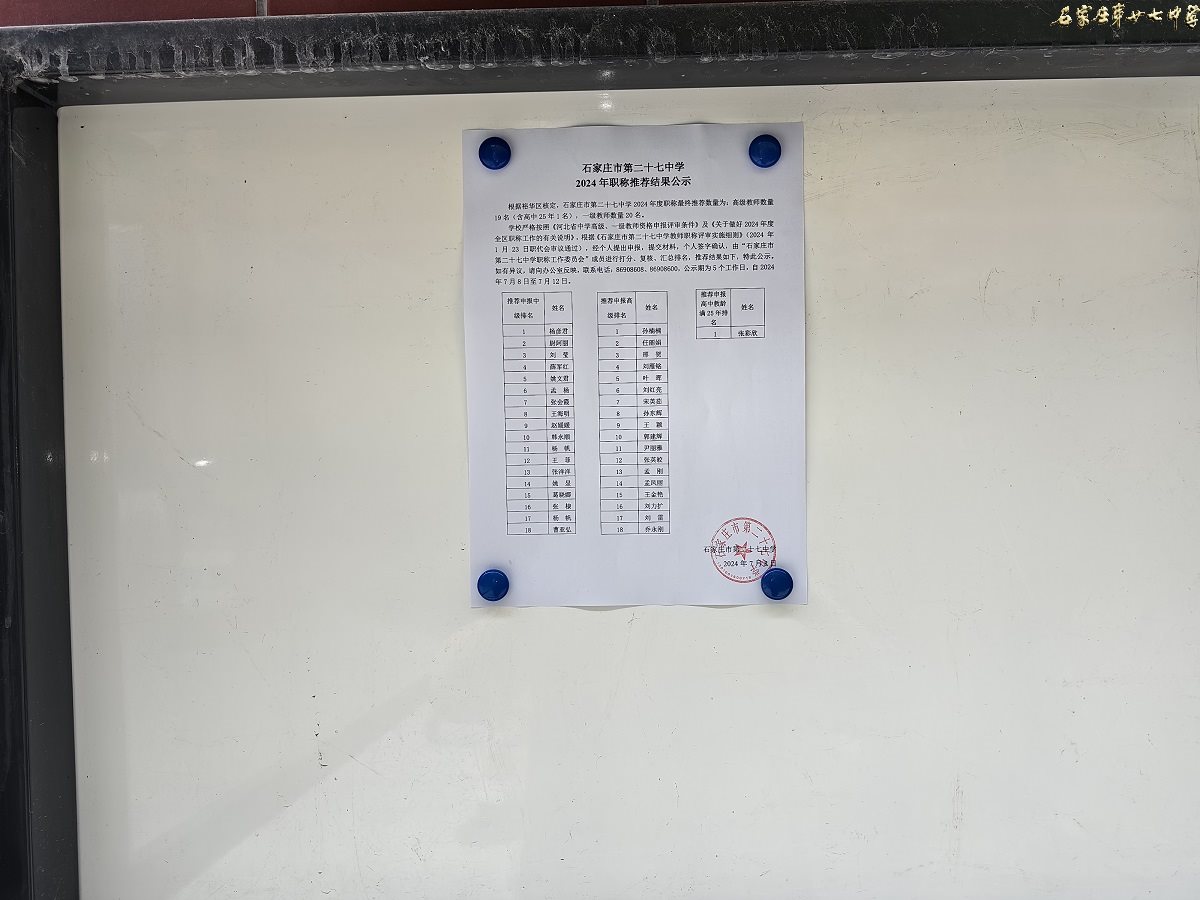 石家庄第廿七中学
石家庄市第二十七中学
2024 年职称推荐结果公示
根据裕华区核定，石家庄市第二十七中学 2024 年度职称最终推荐数量为：高级教师数量
19 名（含高中 25 年 1 名），一级教师数量 20 名。
学校严格按照《河北省中学高级、一级教师资格申报评审条件》及《关于做好 2024 年度
全区职称工作的有关说明》，根据《石家庄市第二十七中学教师职称评审实施细则》（2024 年
1 月 23 日职代会审议通过），经个人提出申报，提交材料，个人签字确认，由“石家庄市
第二十七中学职称工作委员会”成员进行打分、复核、汇总排名，推荐结果如下，特此公示。
如有异议，请向办公室反映，联系电话：86908608、86908600。公示期为 5 个工作日，自 2024
年 7 月 8 日至 7 月 12 日。
推荐申报中级排名 姓名
1 杨彦君
2 尉阿丽
3 刘 莹
4 薛军红
5 姚文君
6 孟 杨
7 张会霞
8 王海明
9 赵媛媛
10 韩永顺
11 杨 帆
12 王 菲
13 张祎洋
14 姚 昱
15 葛晓娜
16 张 棱
17 杨 帆
18 曹亚弘
推荐申报高级排名 姓名
1 孙楠楠
2 任丽娟
3 邢 贺
4 刘雁铭
5 叶 晖
6 刘红亮
7 宋英茹
8 孙东辉
9 王 颖
10 郭建辉
11 尹丽雅
12 张英胶
13 孟 刚
14 孟凤丽
15 王金艳
16 刘力扩
17 刘 雷
18 乔永刚
推荐申报高中教龄满 25 年排名 姓名
1 张彩欣
石家庄市第二十七中学
2024 年 7 月 8 日